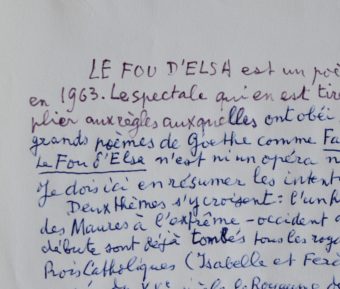 LE FOU D'ELSA est un poè
en 1963. Le spectale qui en est tiré
plier aux règles auxquelles ont obéi
grands poèmes de Goethe comme Fa
le Fou d'Elsa n'est ni un opéra n
Je dois ici en résumer les intent
Deux thèmes s'y croisent : l'un h
des Maures à l'extrême-occident d
débute sont déjà tombés tous les roy
Rois Catholiques (Isabelle et Fer